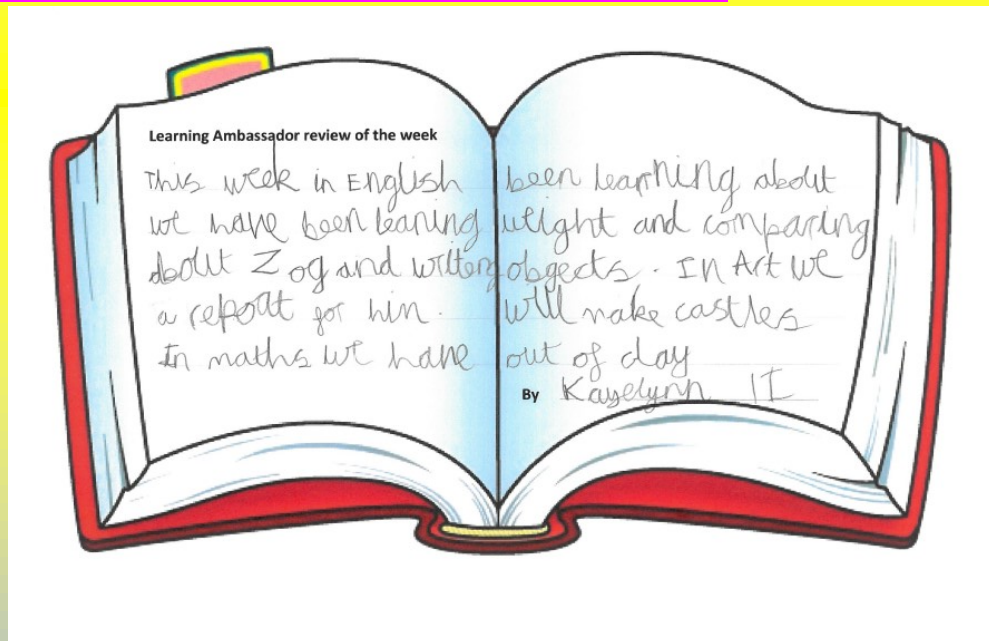 Learning Ambassador review of the week
This week in English
we have been leaning
about Zog and writeng
a report for him.
In maths we have
been learning about
weight and comparing
obgects. In Art we
will make castles
out of clay
By Kayelynn 1I